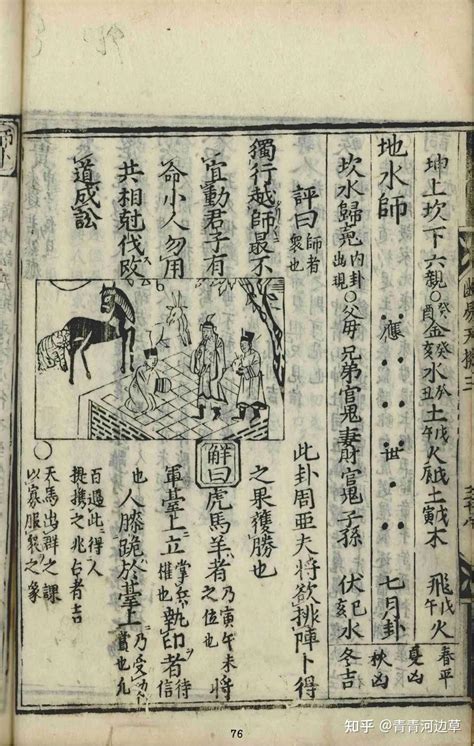 坤上坎下六親
癸酉金癸亥水癸丑土戊午火戊辰土戊寅木
飛戊午火
春平
夏凶
地水師
應
世
七月卦
秋凶
坎水歸䰟內卦出現
父母兄弟官鬼妻財官鬼子孫
伏己亥水
冬吉
評曰師者衆也
此卦周亞夫將欲排陣卜得
之果獲勝也
獨行越師最不
宜動君子有
命小人勿用
共相尅伐改
道成訟
解曰虎馬羊者乃寅午未之位也將
軍臺上立掌兵權也執印者信待
也人膝跪於臺上乃受功賞也九
百過此得人
提携之兆占者吉
天馬出群之課
以寡服衆之象
76
知乎 @青青河边草